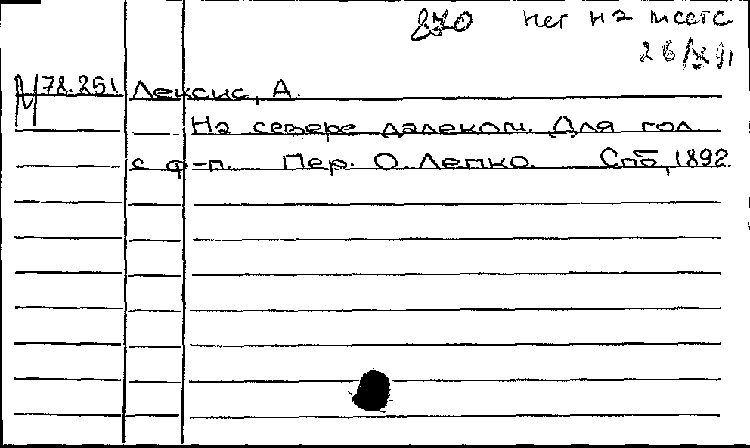 870 нет на месте
26/X 91
М 78.251 Лексис, А.
На севере далеком. Для гол.
с ф-п. Пер. О. Лепко. Спб, 1892